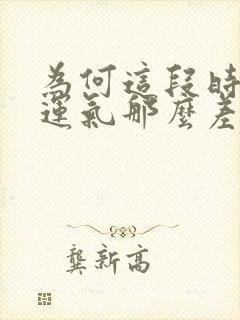 為何這段時
運氣那麼差
龔新高